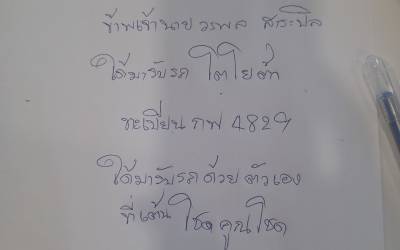 ข้าพเจ้านาย วรพล สาระปิล
ได้มารับรถ โตโยต้า
ทะเบียน กพ 4829
ได้มารับรถด้วยตัวเอง
ที่เต้น โชคคูณโชค